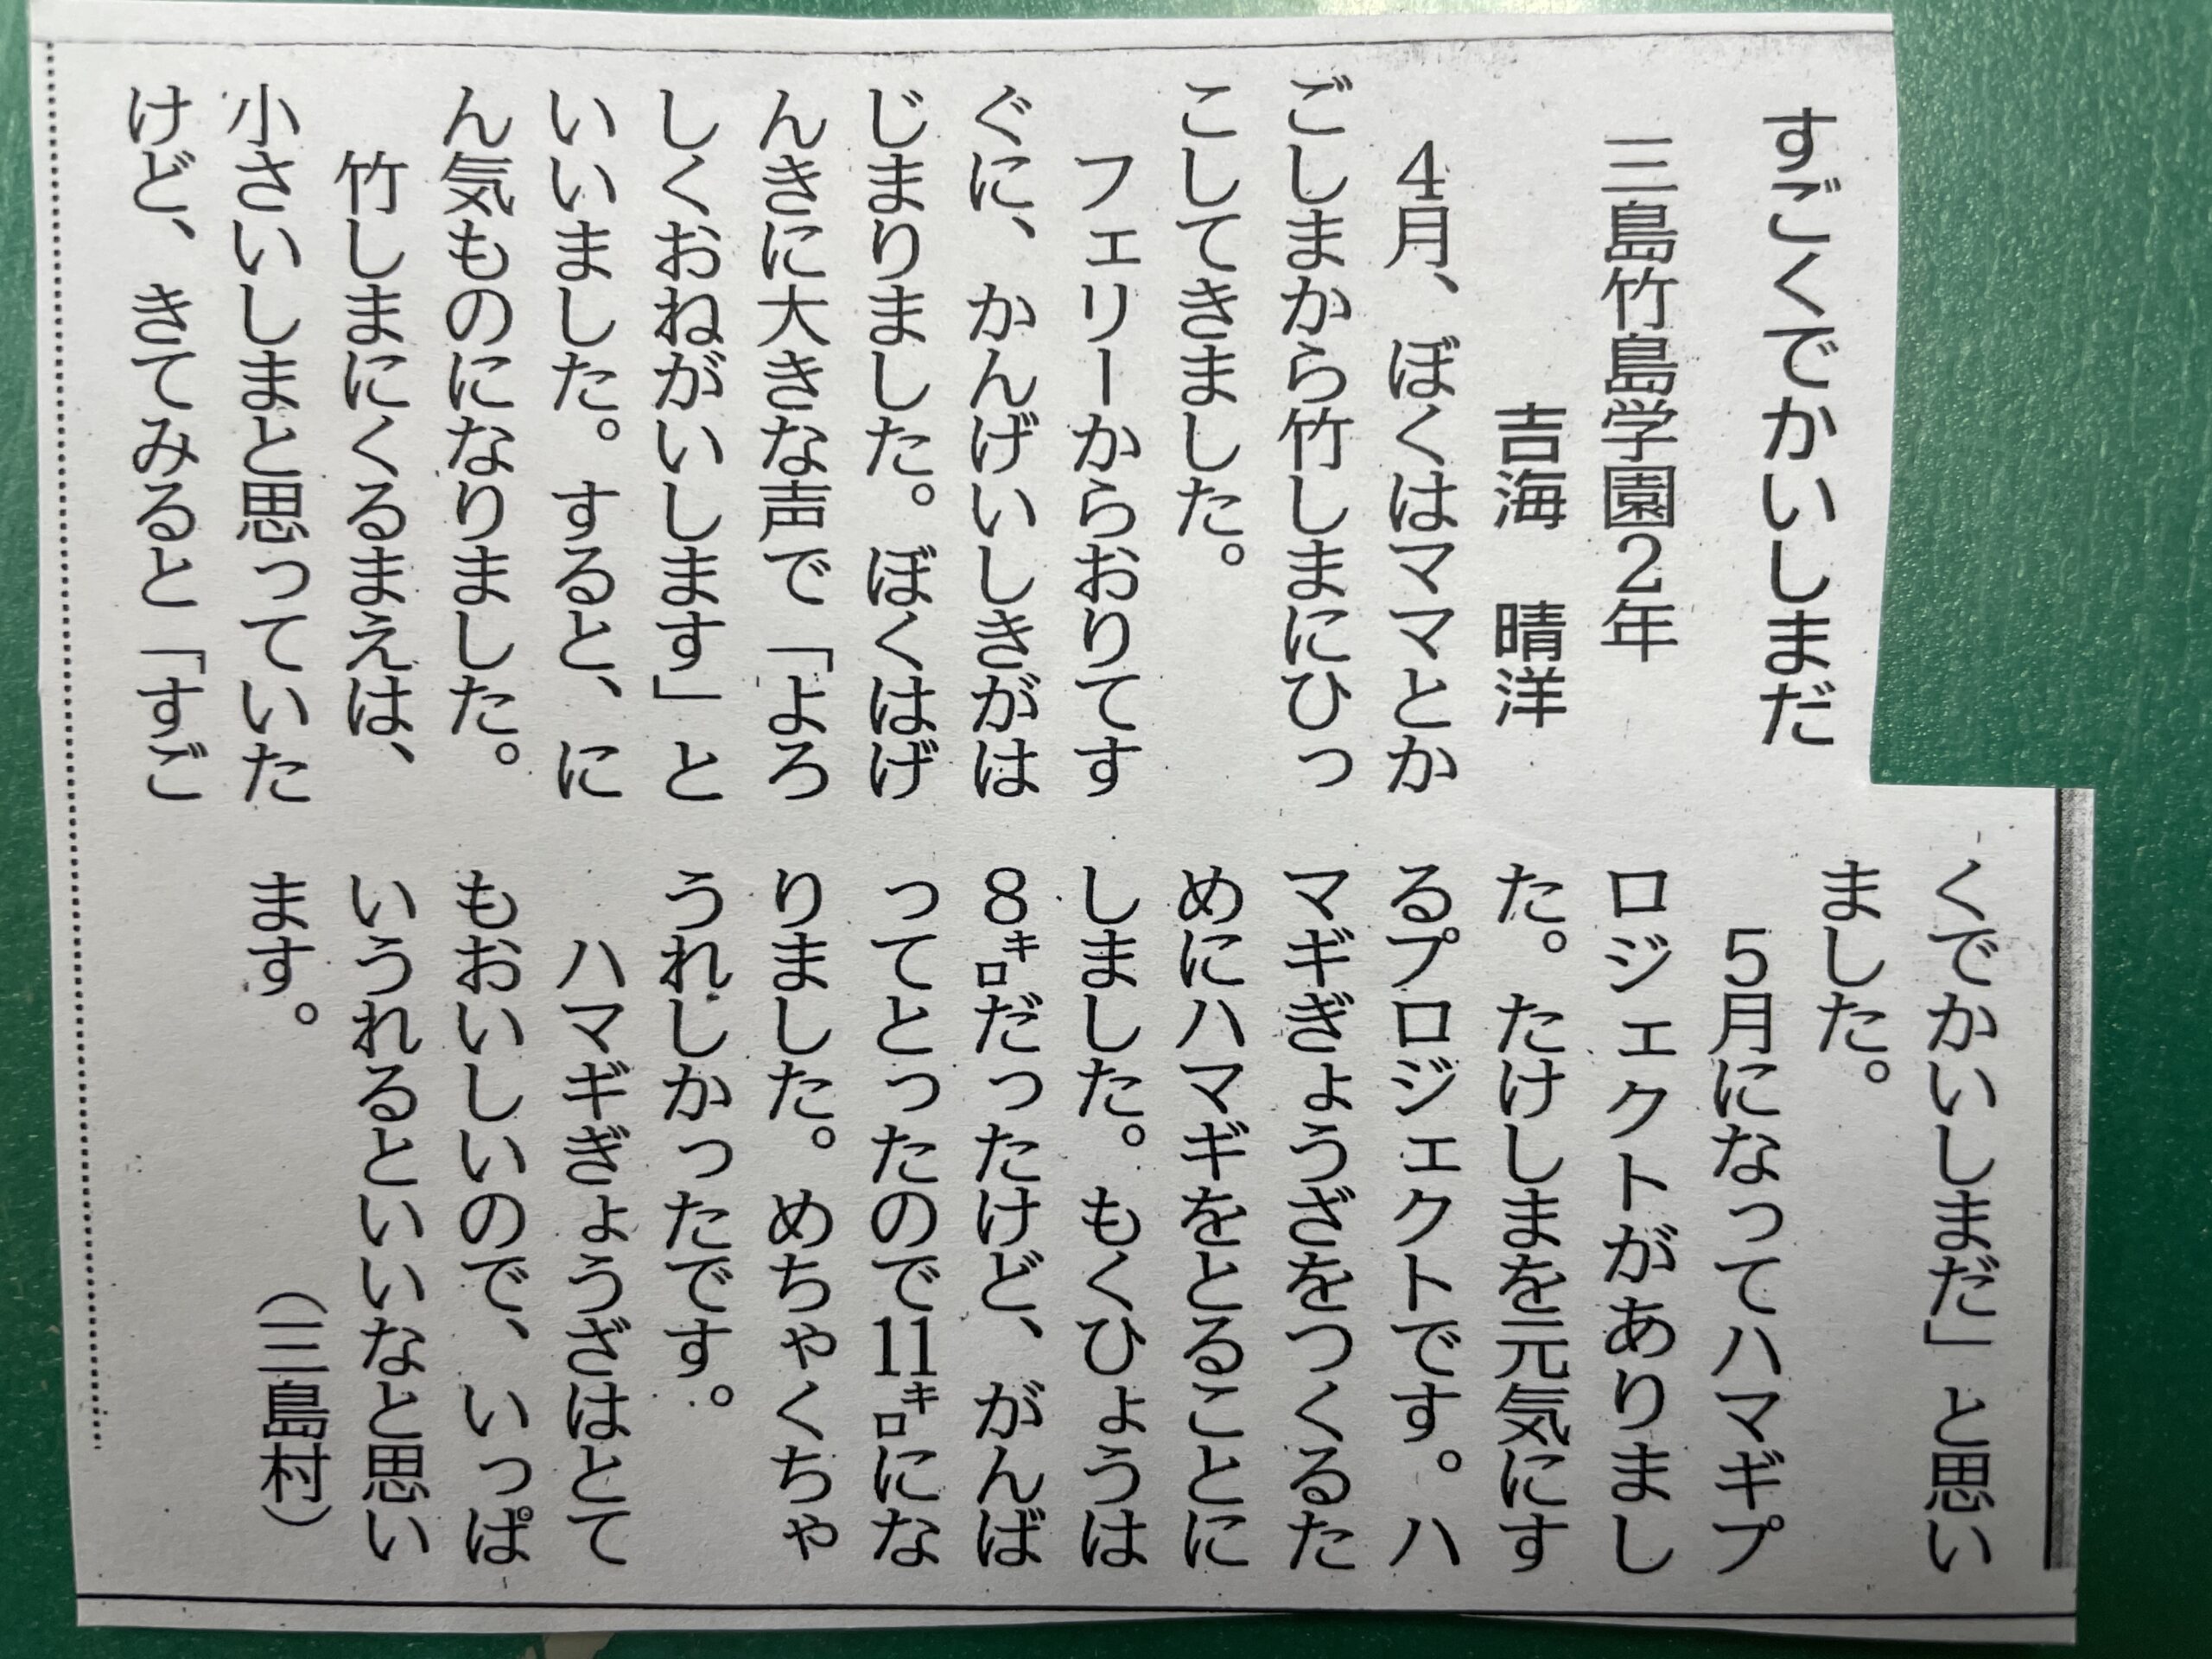 すごくでかいしまだ
三島竹島学園２年
吉海　晴洋
４月、ぼくはママとか
ごしまから竹しまにひっ
こしてきました。
フェリーからおりてす
ぐに、かんげいしきがは
じまりました。ぼくはげ
んきに大きな声で「よろ
しくおねがいします」と
いいました。すると、に
ん気ものになりました。
竹しまにくるまえは、
小さいしまと思っていた
けど、きてみると「すご
くでかいしまだ」と思い
ました。
５月になってハマギプ
ロジェクトがありまし
た。たけしまを元気にす
るプロジェクトです。ハ
マギぎょうざをつくるた
めにハマギをとることに
しました。もくひょうは
８㌔だったけど、がんば
ってとったので11㌔にな
りました。めちゃくちゃ
うれしかったです。
ハマギぎょうざはとて
もおいしいので、いっぱ
いうれるといいなと思い
ます。
（三島村）